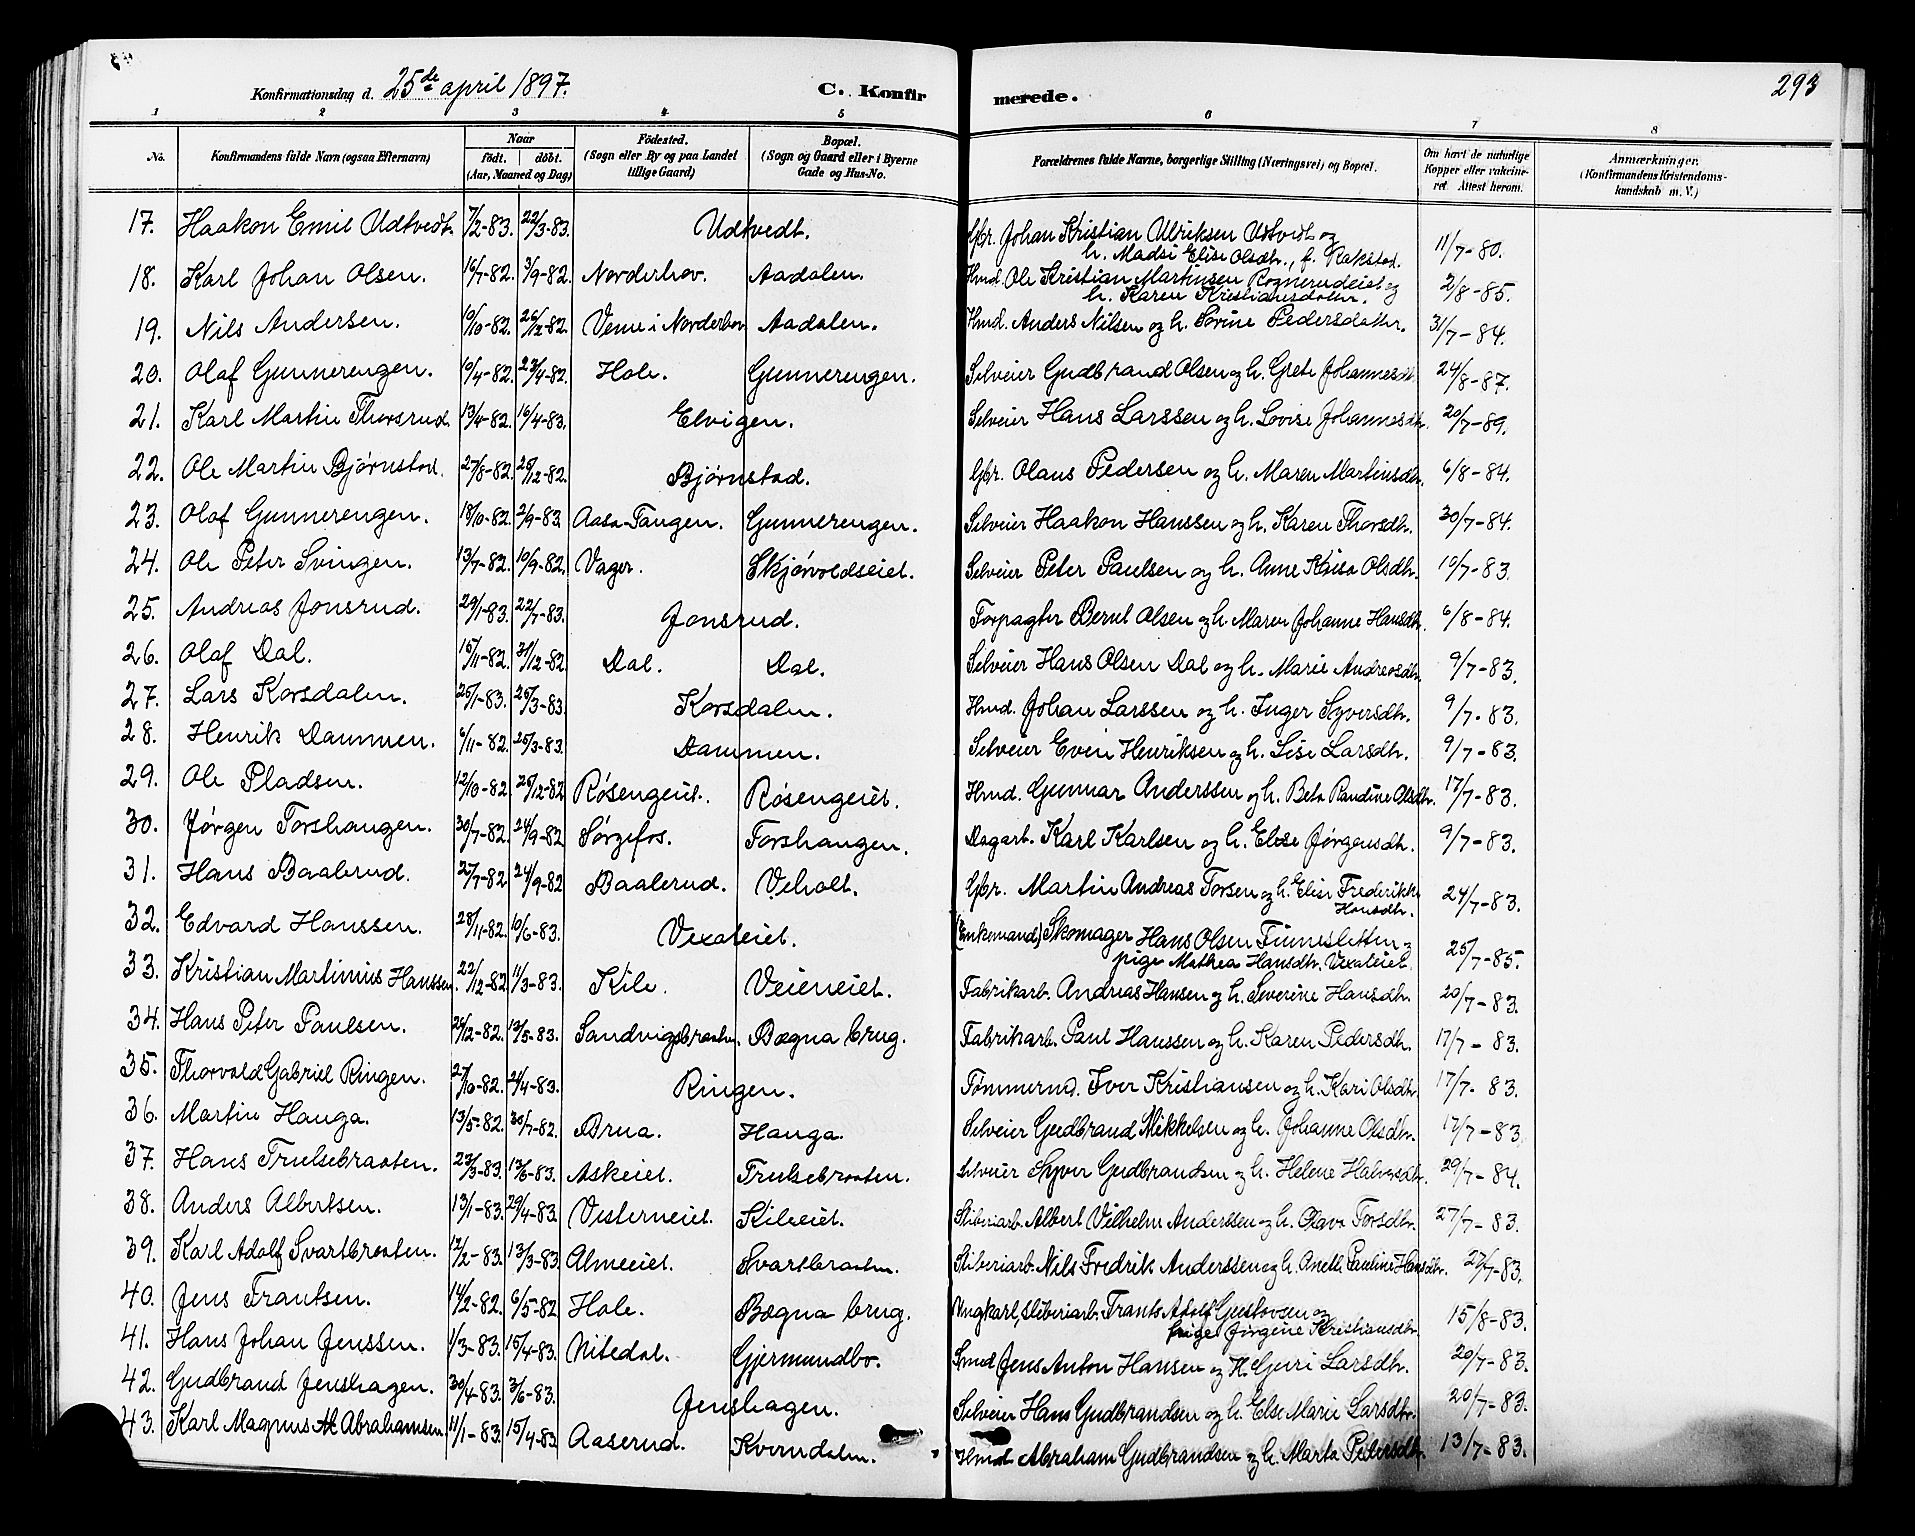 Konfirmationsdag d. 25de april 1897. C. Konfirmerede. 293
1 2 3 4 5 6 7 8
No. Konfirmandens fulde Navn (ogsaa Efternavn) Naar født. døbt. (Aar, Maaned og Dag) Födested. (Sogn eller By og paa Landet tillige Gaard) Bopæl. (Sogn og Gaard eller i Byerne Gade og Hus-No. Forældrenes fulde Navne, borgerlige Stilling (Næringsvei) og Bopæl. Om havt de naturlige Kopper eller vakcineret. Attest herom. Anmærkninger. (Konfirmandens Kristendomskundskab m. V.)
17. Haakon Emil Udtvedt. 7/2-83. 22/3-83. Udtvedt. Gbr. Johan Kristian Ulriksen Udtvedt og h. Madsi Elise Olsdtr., f. Rakstad. 11/7-80.
18. Karl Johan Olsen. 16/7-82. 3/9-82. Norderhov. Aadalen. Hmd. Ole Kristian Martinsen Rognerudeiet og h. Karen Kristiansdatter. 2/8-85.
19. Nils Andersen. 10/10-82. 26/12-82. Veme i Norderhov Aadalen. Hmd. Anders Nilsen og h. Sorine Pedersdatter. 31/7-84.
20. Olaf Gunnerengen. 10/4-82. 23/4-82. Hole. Gunnerengen. Selveier Gudbrand Olsen og h. Grete Johannesdt. 24/8-87.
21. Karl Martin Thorsrud. 13/4-82. 16/4-83. Elvigen. Selveier Hans Larssen og h. Lovise Johannesdtr. 20/7-89.
22. Ole Martin Bjørnstad. 27/8-82. 26/12-82. Bjørnstad. Gbr. Olaus Pedersen og h. Maren Martinsdtr. 6/8-84.
23. Olaf Gunnerengen. 18/10-82. 2/9-83. Aasa-Tangen. Gunnerengen. Selveier Haakon Hanssen og h. Karen Thorsdtr. 30/7-84.
24. Ole Peter Svingen. 13/7-82. 10/9-82. Vager. Skjørvoldseiet. Selveier Peter Paulsen og h. Anne Kaisa Olsdtr. 10/7-83.
25. Andreas Jonsrud. 29/1-83. 22/7-83. Jonsrud. Forpagter Bernt Olsen og h. Maren Johanne Hansdtr. 6/8-84.
26. Olaf Dal. 15/11-82. 31/12-82. Dal. Dal. Selveier Hans Olsen Dal og h. Marie Andreasdtr. 9/7-83.
27. Lars Korsdalen. 25/1-83. 26/3-83. Korsdalen. Hmd. Johan Larssen og h. Inger Syversdtr. 9/7-83.
28. Henrik Dammen. 6/11-82. 25/3-83. Dammen. Selveier Even Henriksen og h. Lise Larsdtr. 9/7-83.
29. Ole Pladsen. 12/10-82. 26/12-82 Røsengeiet. Røsengeiet. Hmd. Gunnar Anderssen og h. Beta Randine Olsdtr. 17/7-83.
30. Jørgen Forshaugen. 30/7-82. 24/9-82 Sørgefos. Forshaugen. Dagarb. Karl Karlsen og h. Elise Jørgensdtr. 9/7-83.
31. Hans Baalerud. 27/7-82 24/9-82 Baalerud. Veholt. Gbr. Martin Andreas Torsen og h. Elise Frederikke Hansdtr. 24/7-83.
32. Edvard Hanssen. 28/11-82. 10/6-83. Vexaleiet. (Enkemand) Skomager Hans Olsen Finnesletten og pige Mathea Hansdtr. Vexaleiet. 25/7-85.
33. Kristian Martinius Hanssen. 22/12-82 11/3-83. Kile. Veieneiet. Fabrikarb. Andreas Hansen og h. Severine Hansdtr. 20/7-83.
34. Hans Peter Paulsen. 26/12-82. 13/5-83. Sandvigsbraaten. Bægna brug. Fabrikarb. Paul Hanssen og h. Karen Pedersdtr. 17/7-83.
35. Thorvald Gabriel Ringen. 27/10-82. 21/4-83. Ringen. Tømmermd. Iver Kristiansen og h. Kari Olsdtr. 17/7-83.
36. Martin Hauga. 13/5-82. 30/7-82. Brua. Hauga. Selveier Gudbrand Mikkelsen og h. Johanne Olsdtr. 17/7-83.
37. Hans Trulsebraaten. 23/3-83. 13/6-83. Askeiet. Trulsebraaten. Selveier Syver Gudbrandsen og h. Helene Halvorsdtr. 29/7-84.
38. Anders Albertsen. 13/1-83. 29/4-83. Vesterneiet. Kileeiet. Sliberiarb. Albert Vilhelm Anderssen og h. Olava Torsdtr. 27/7-83.
39. Karl Adolf Svartbraaten. 12/2-83. 13/3-83. Almeeiet. Svartbraaten. Sliberiarb. Nils Fredrik Anderssen og h. Anette Pauline Hansdtr. 27/7-83.
40. Jens Frantsen. 14/2-82. 6/5-82 Hole. Bægna brug. Ungkarl, sliberiarb. Frants Adolf Gustavsen og pige Jørgine Kristiansdtr. 15/8-83.
41. Hans Johan Jenssen. 1/3-83. 15/4-83. Nitedal. Gjermundbo. Smed Jens Anton Hansen og H. Guri Larsdtr. 20/7-83.
42. Gudbrand Jenshagen. 30/4-83. 3/6-83. Jenshagen. Selveier Hans Gudbrandsen og h. Else Marie Larsdtr. 20/7-83.
43. Karl Magnus Abrahamsen. 11/1-83. 15/4-83 Aaserud. Kverndalen. Hmd. Abraham Gudbrandsen og h. Marta Pedersdtr. 13/7-83.